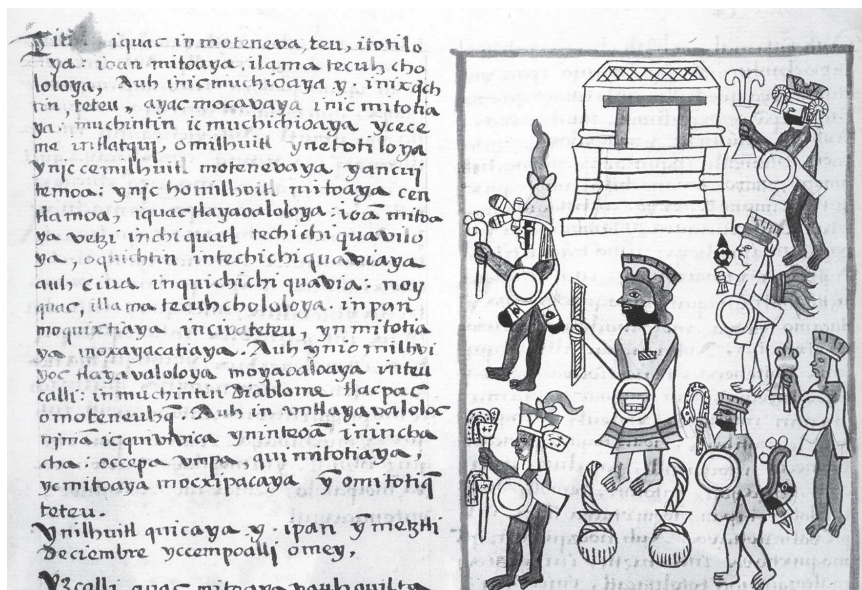 Titi iquac in moteneva, teu, itotilo
ya: ioan mitoaya, ilama tecuh cho
loloya, Auh inic muchivaya y, inixqch
tin, teteu, ayac mocavaya inic mitotia
ya. muchintin ic muchichivaya ycece
me intlatqui, omilhuitl ynetotiloya
ynic cemilhuitl motenevaya yancuij
temoa: ynic homilhuitl mitoaya cen
tlamoa, iquac tlayaoaloloya: ioā mitoa
ya vetzi inchiquatl techichiquavilo
ya, yoquichtin intechichiquaviaya
auh ciua inquichichiquavia: noy
quac, illama tecuhchololoya. inpan
moquixtiaya incivateteu, yn mitotia
ya moxayacatiaya. Auh ynic milhvi
yoc tlayavaloloya moyaoaloaya inteu
calli: in muchintin diablome tlacpac
omoteneuhq̄. Auh in ontlayavaloloc
nimā ic quivivica yninteoā inincha
cha. occepa vmpa, qui mitotiaya,
yc mitoaya mocxipacaya y omitotiq̄
teteu.
ynilhuitl quiçaya. y. ipan y metztli
Deciembre yc cempoalli omey.
Yzcalli quac mitoaya